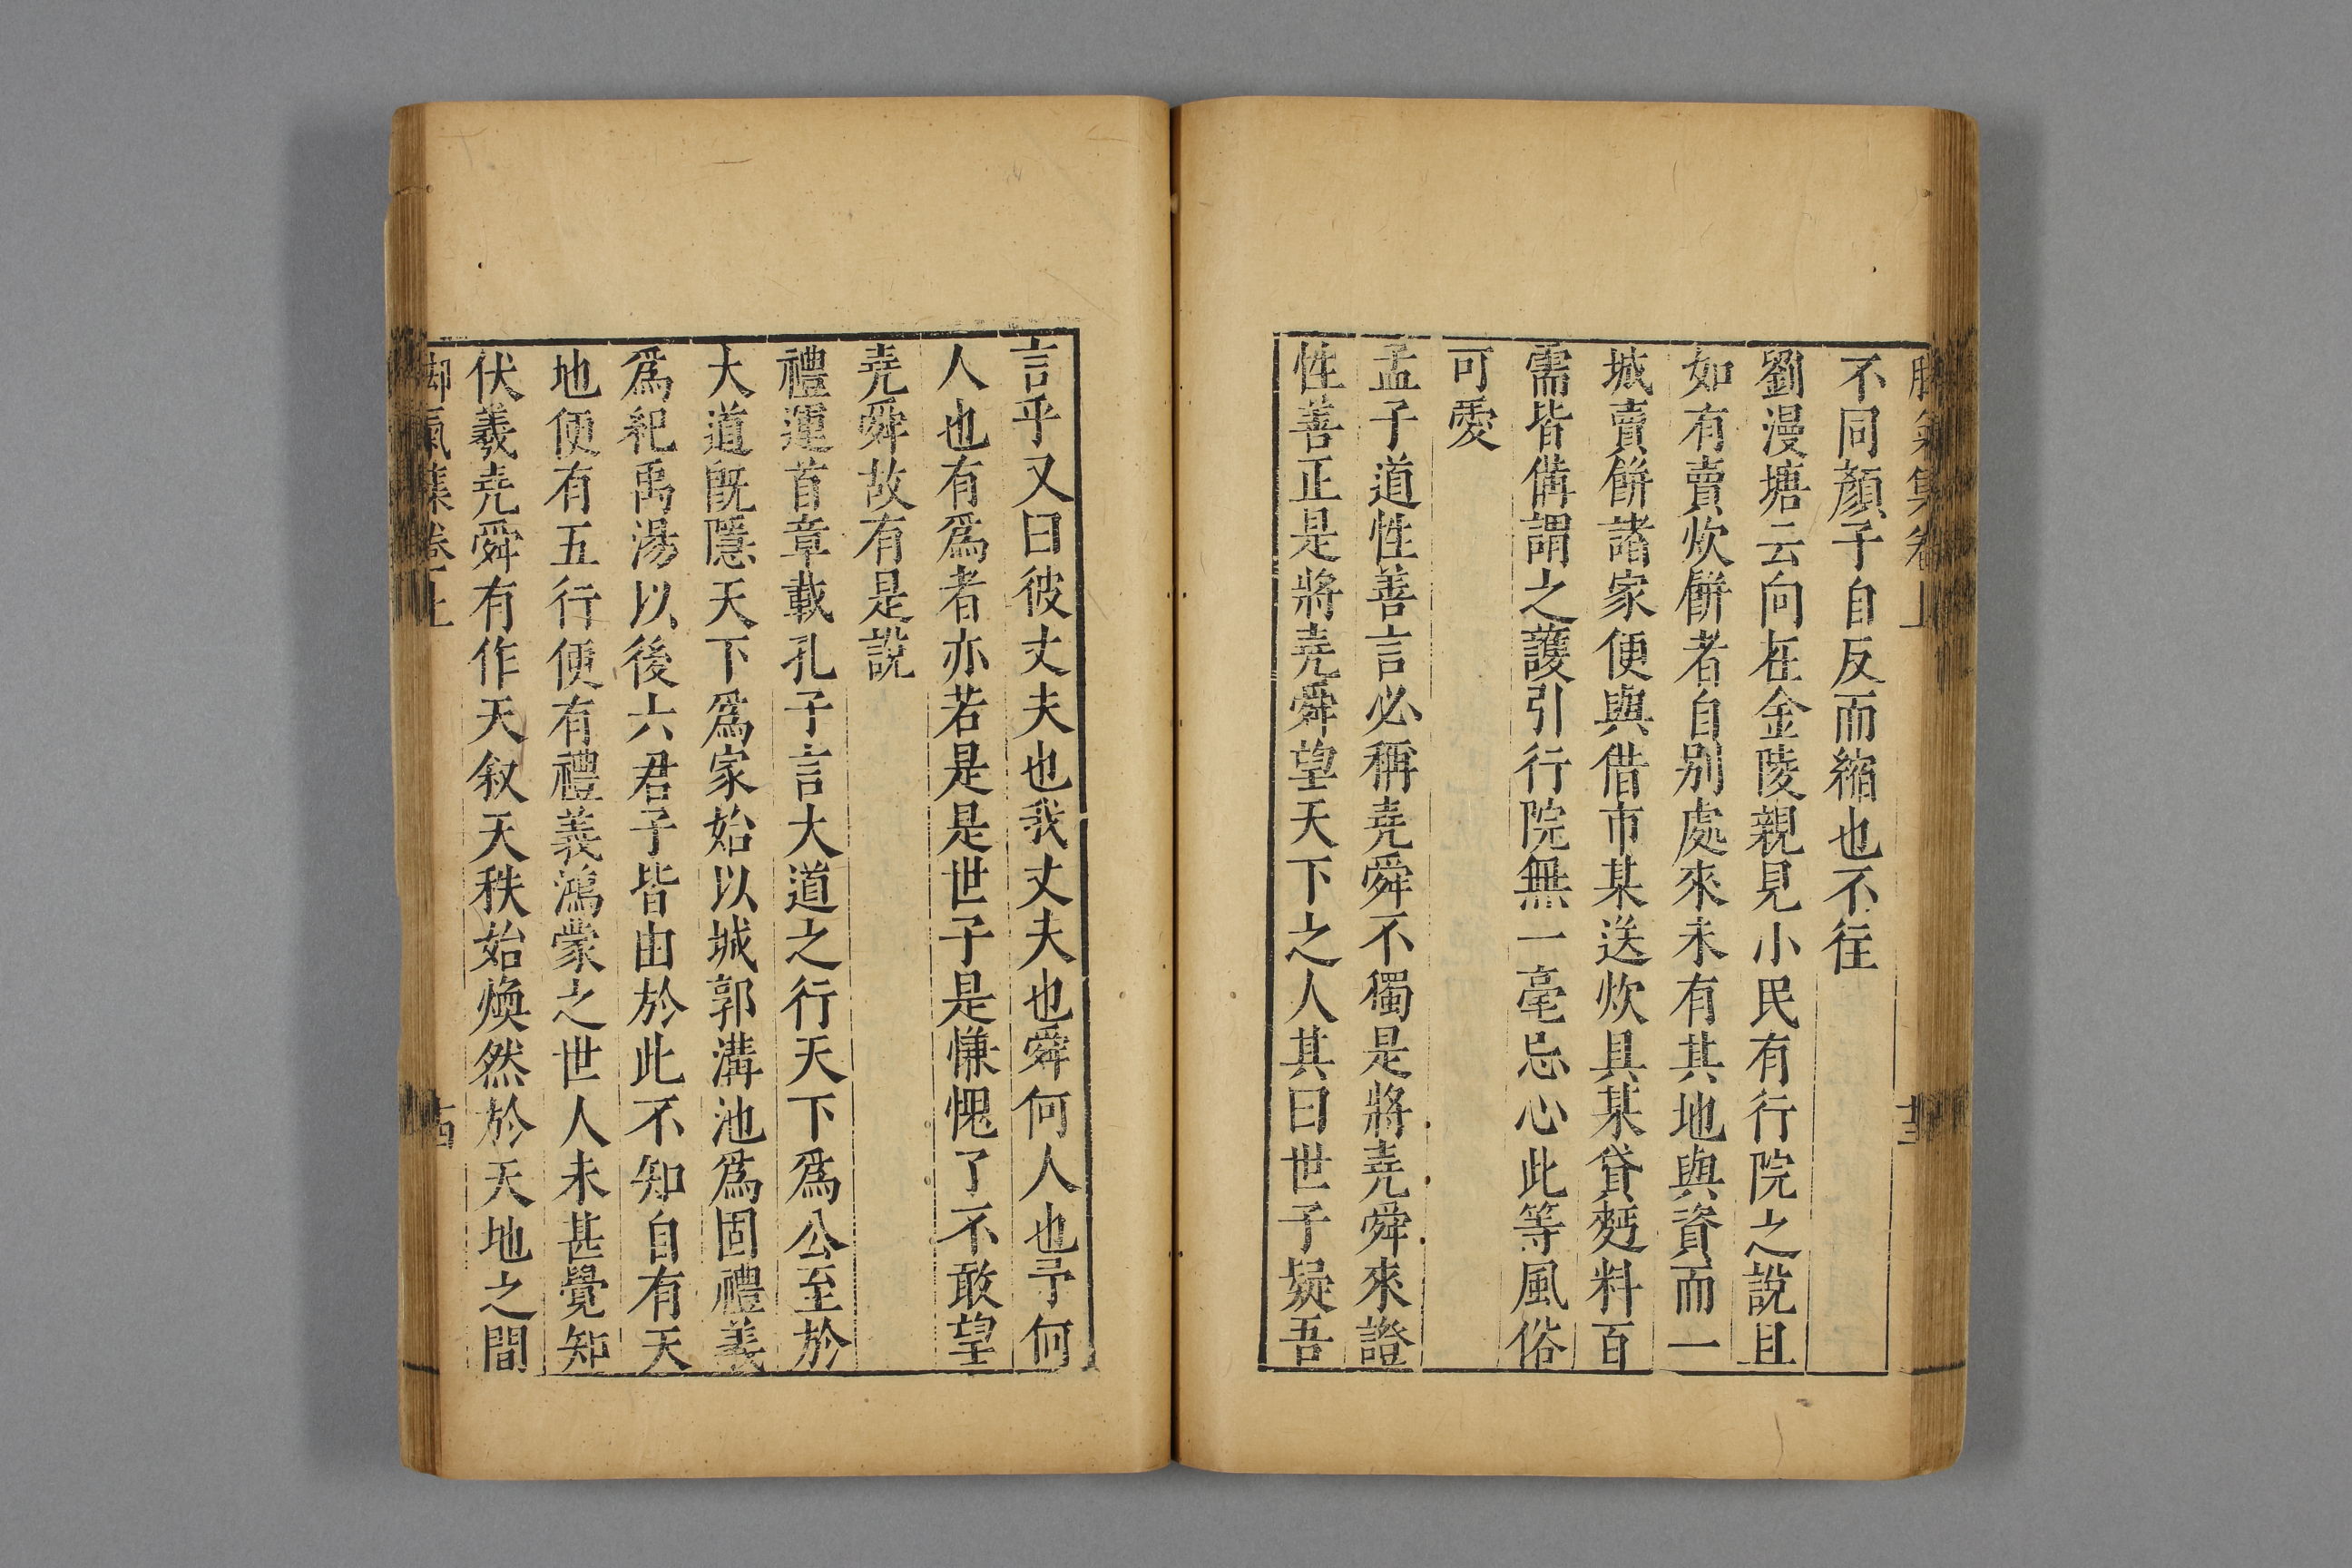 脚氣集卷上
不同顏子自反而縮也不往
劉漫塘云向在金陵親見小民有行院之說且
如有賣炊餅者自别處來未有其地與資而一
城賣餅諸家便與借市某送炊具某貸麪料百
需皆偹謂之護引行院無一毫忌心此等風俗
可愛
孟子道性善言必稱堯舜不獨是將堯舜來證
性善正是將堯舜望天下之人其曰世子疑吾
言乎又曰彼丈夫也我丈夫也舜何人也予何
人也有爲者亦若是是世子是慊愧了不敢望
堯舜故有是說
禮運首章載孔子言大道之行天下爲公至於
大道旣隱天下爲家始以城郭溝池爲固禮義
爲紀禹湯以後六君子皆由於此不知自有天
地便有五行便有禮義鴻蒙之世人未甚覺知
伏羲堯舜有作天叙天秩始煥然於天地之間
脚氣集卷上